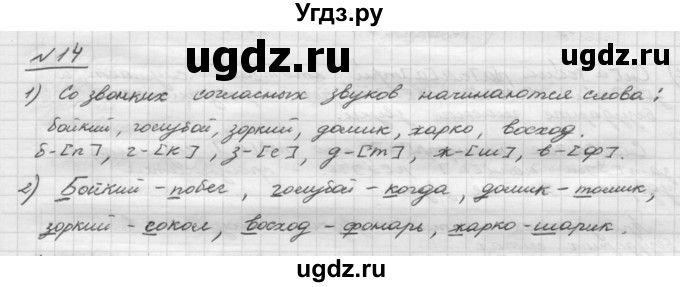 Угdз.ру
№14
ugdz.ru
1) Со звонких согласных звуков начинаются слова:
бойкий, голубой, зоркий, домик, жарко, восход.
б-[п], г-[к], з-[с], д-[т], ж-[ш], в-[ф].
ugdz.ru
2) Бойкий - побег, голубой - когда, домик - томик,
зоркий - сокол, восход - фонарь, жарко - шарик.
ugdz.ru